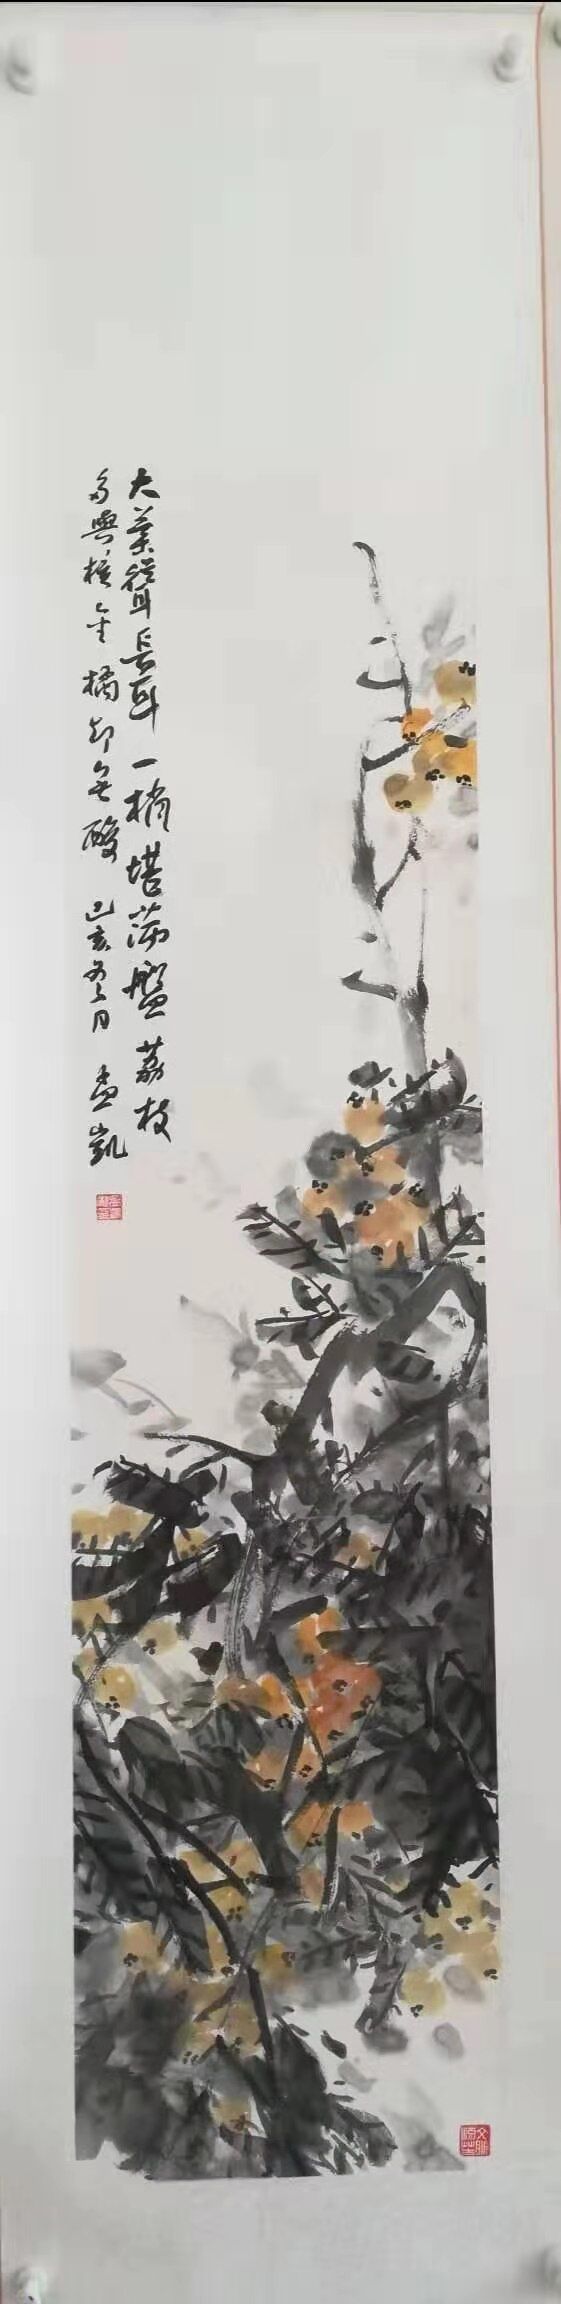 大叶耸长耳一梢堪满盘荔枝
多与核金橘却无酸 己亥冬月 孟凯